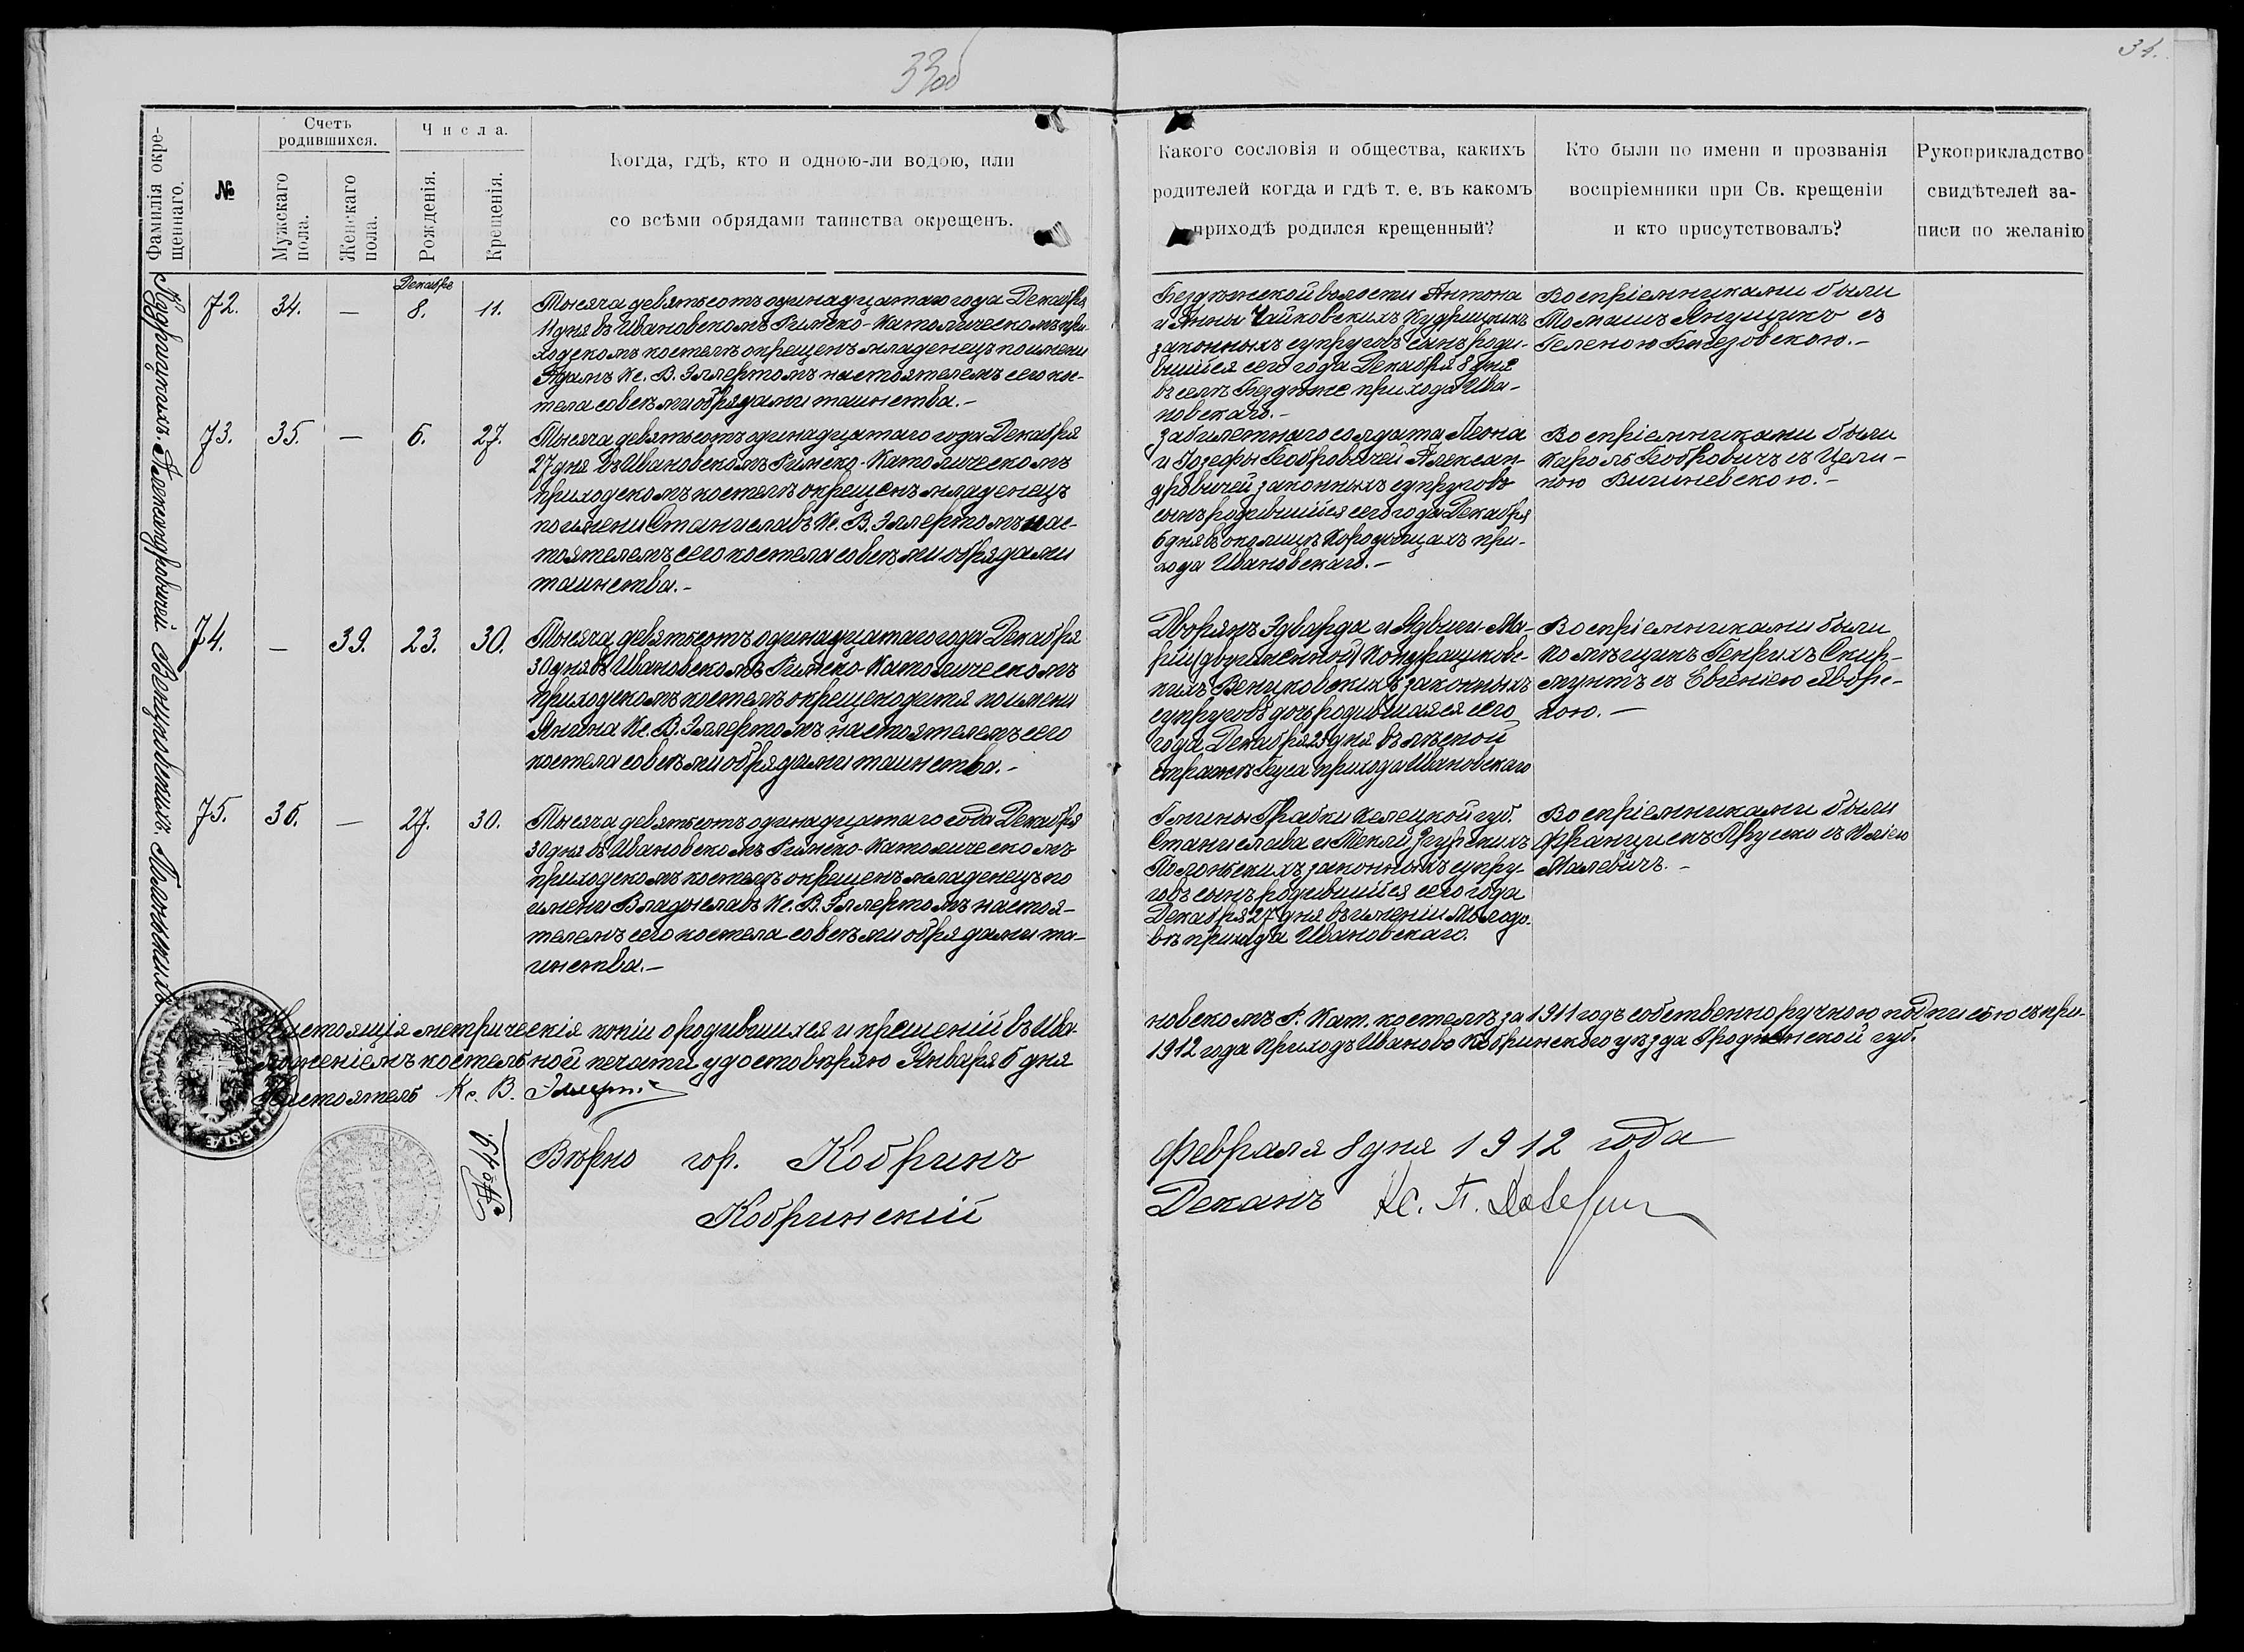 33об
34.
Фамилія окре-
щеннаго.
№
Счетъ
родившихся.
Мужскаго
пола.
Женскаго
пола.
Числа.
Рожденія.
Крещенія.
Когда, гдѣ, кто и одною-ли водою, или
со всѣми обрядами таинства окрещенъ.
Какого сословія и общества, какихъ
родителей когда и гдѣ т. е. въ какомъ
приходѣ родился крещенный?
Кто были по имени и прозванія
воспріемники при Св. крещеніи
и кто присутствовалъ?
Рукоприкладство
свидѣтелей за-
писи по желанію
Декабре
72. 34. — 8. 11.
Тысяча девятьсотъ одинадцатаго года Декабря
11 дня въ Ивановскомъ Римско-Католическомъ при-
ходскомъ костелѣ окрещенъ младенецъ по имени
Адамъ Кс. В. Эллертомъ настоятелемъ сего ко-
стела со всѣми обрядами таинства.-
Бездѣжской волости Антона
и Анны Чайковскихъ Кудрицкихъ
законныхъ супруговъ сынъ роди-
вшійся сего года Декабря 8 дня
въ селѣ Бездѣже прихода Ива-
новскаго.-
Воспріемниками были
Томашъ Янушикъ съ
Геленою Березовскою.-
73. 35. — 6. 27.
Тысяча девятьсотъ одинадцатаго года Декабря
27 дня въ Ивановскомъ Римско-Католическомъ
приходскомъ костелѣ окрещенъ младенецъ
по имени Станиславъ Кс. В. Эллертомъ нас-
тоятелемъ сего костела со всѣми обрядами
таинства.-
Забилетнаго солдата Леона
и Іозефы Бобровичей Алексан-
дровичей законныхъ супруговъ
сынъ родившійся сего года Декабря
6 дня въ околицѣ Городищахъ при-
хода Ивановскаго.-
Воспріемниками были
Кароль Бобровичъ съ Цели-
ною Вишневскою.-
74. — 39. 23. 30.
Тысяча девятьсотъ одинадцатаго года Декабря
30 дня въ Ивановскомъ Римско-Католическомъ
приходскомъ костелѣ окрещено дитя по имени
Янина Кс. В. Эллертомъ настоятелемъ сего
костела со всѣми обрядами таинства.-
Дворянъ Эдварда и Ядвиги-Ма-
ріи (двуименной) Кондрашковс-
кихъ Венцковскихъ законныхъ
супруговъ дочь родившаяся сего
года Декабря 23 дня въ лѣсной
стражѣ прихода Ивановскаго
Воспріемниками были
помѣщикъ Генрихъ Скир-
мунтъ съ Евгеніею Яворс-
кою.-
75. 36. — 27. 30.
Тысяча девятьсотъ одинадцатаго года Декабря
30 дня въ Ивановскомъ Римско-Католическомъ
приходскомъ костелѣ окрещенъ младенецъ по
имени Владыславъ Кс. В. Эллертомъ настоя-
телемъ сего костела со всѣми обрядами та-
инства.-
Гмины Грабки Келецкой губ.
Станислава и Текли
законныхъ супру-
говъ сынъ родившійся сего года
Декабря 27 дня въ имѣніи Молодо-
вѣ прихода Ивановскаго.
Воспріемниками были
Францискъ Пруско съ Юліею
Малевичъ.-
Настоящія метрическія копіи о родившихся и крещеній въ Ива-
новскомъ Р. Кат. костелѣ за 1911 годъ собственноручною подписью съ при-
ложеніемъ костельной печати удостовѣряю Января 5 дня
1912 года Приходъ Иваново Кобринскаго уѣзда Гродненской губ.
Настоятель Кс. В. Эллертъ
№ 49.
Вѣрно гор. Кобринъ Февраля 8 дня 1912 года
Кобринскій Деканъ Кс.